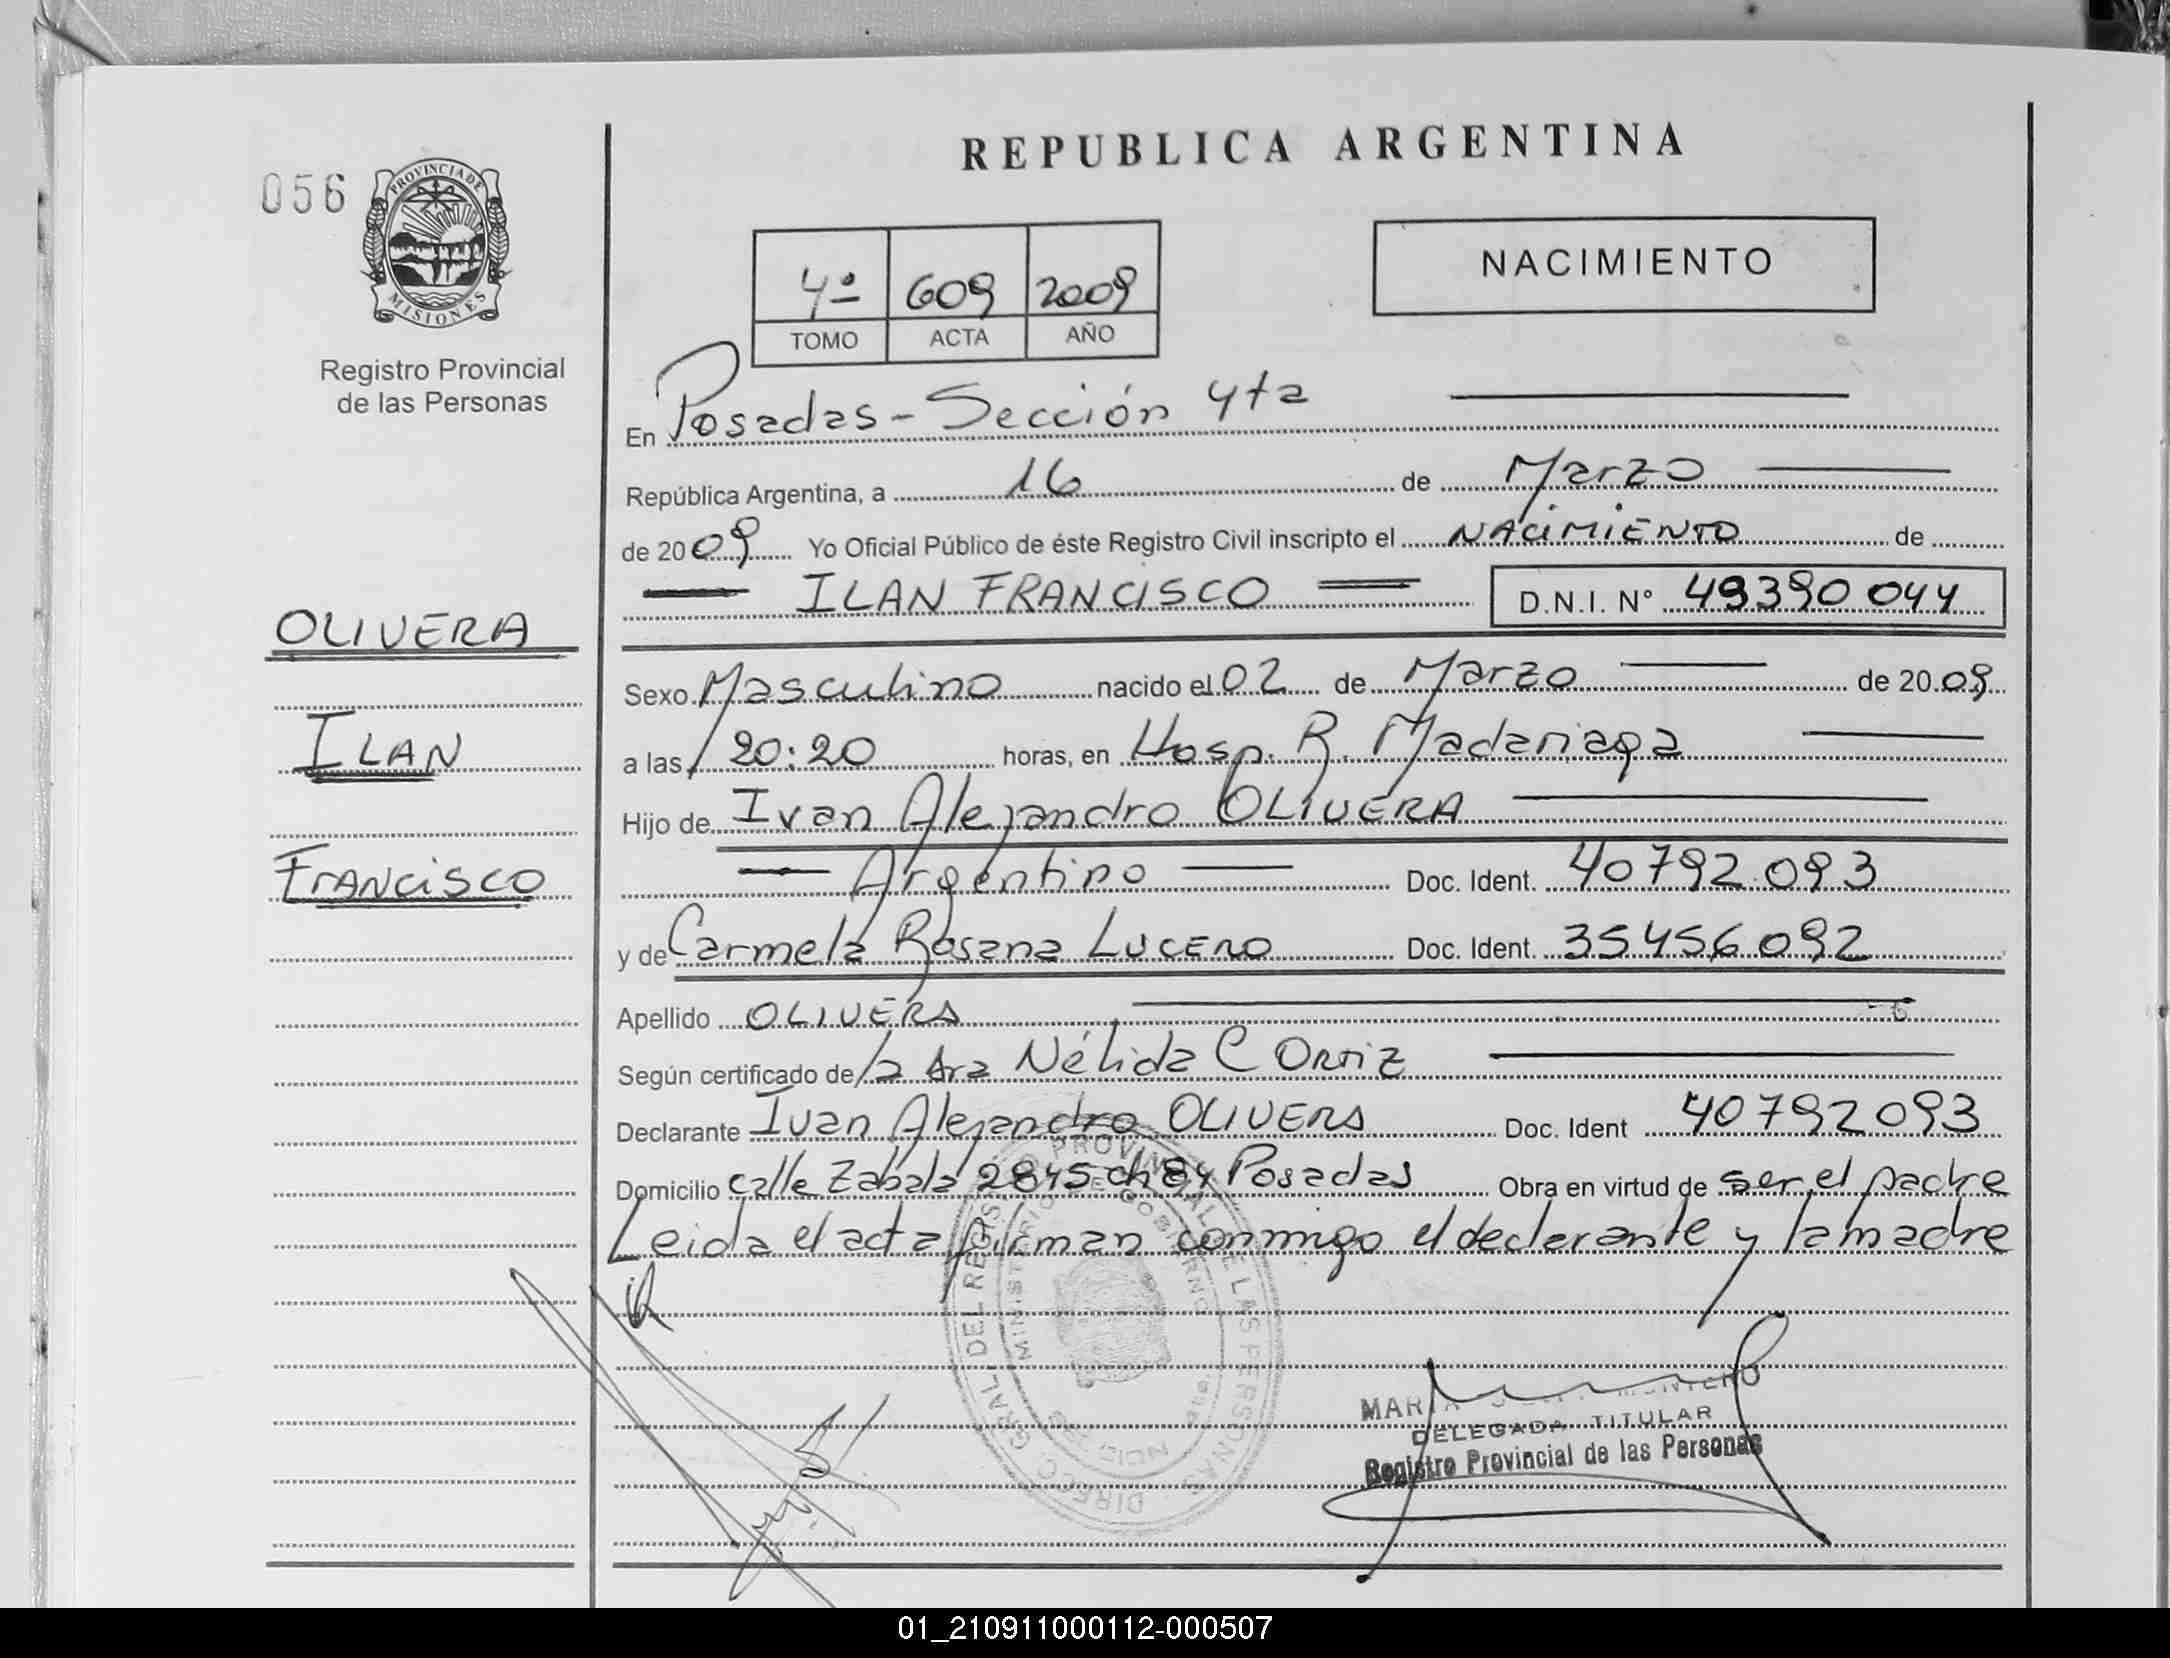 REPUBLICA ARGENTINA
056
PROVINCIA DE
MISIONES
Registro Provincial
de las Personas
4º 609 2009
TOMO ACTA AÑO
NACIMIENTO
En Posadas - Sección 4ta
República Argentina, a 16 de Marzo
de 2009 Yo Oficial Público de éste Registro Civil inscripto el NACIMIENTO de
ILAN FRANCISCO D.N.I. Nº 49390044
OLIVERA
ILAN
FRANCISCO
Sexo Masculino nacido el 02 de Marzo de 2009
a las 20:20 horas, en Hosp. R. Madariaga
Hijo de Ivan Alejandro OLIVERA
Argentino Doc. Ident. 40792093
y de Carmela Rosana LUCERO Doc. Ident. 35456092
Apellido OLIVERA
Según certificado de la dra Nélida C ORTIZ
Declarante Ivan Alejandro OLIVERA Doc. Ident 40792093
Domicilio calle Zabala 2845 ch 84 Posadas Obra en virtud de ser el padre
Leida el acta firman conmigo el declarante y la madre
DIRECC. GRAL. DEL REGISTRO PROVINCIAL DE LAS PERSONAS
MINISTERIO DE GOBIERNO
MARIA
DELEGADA TITULAR
Registro Provincial de las Personas
01_210911000112-000507